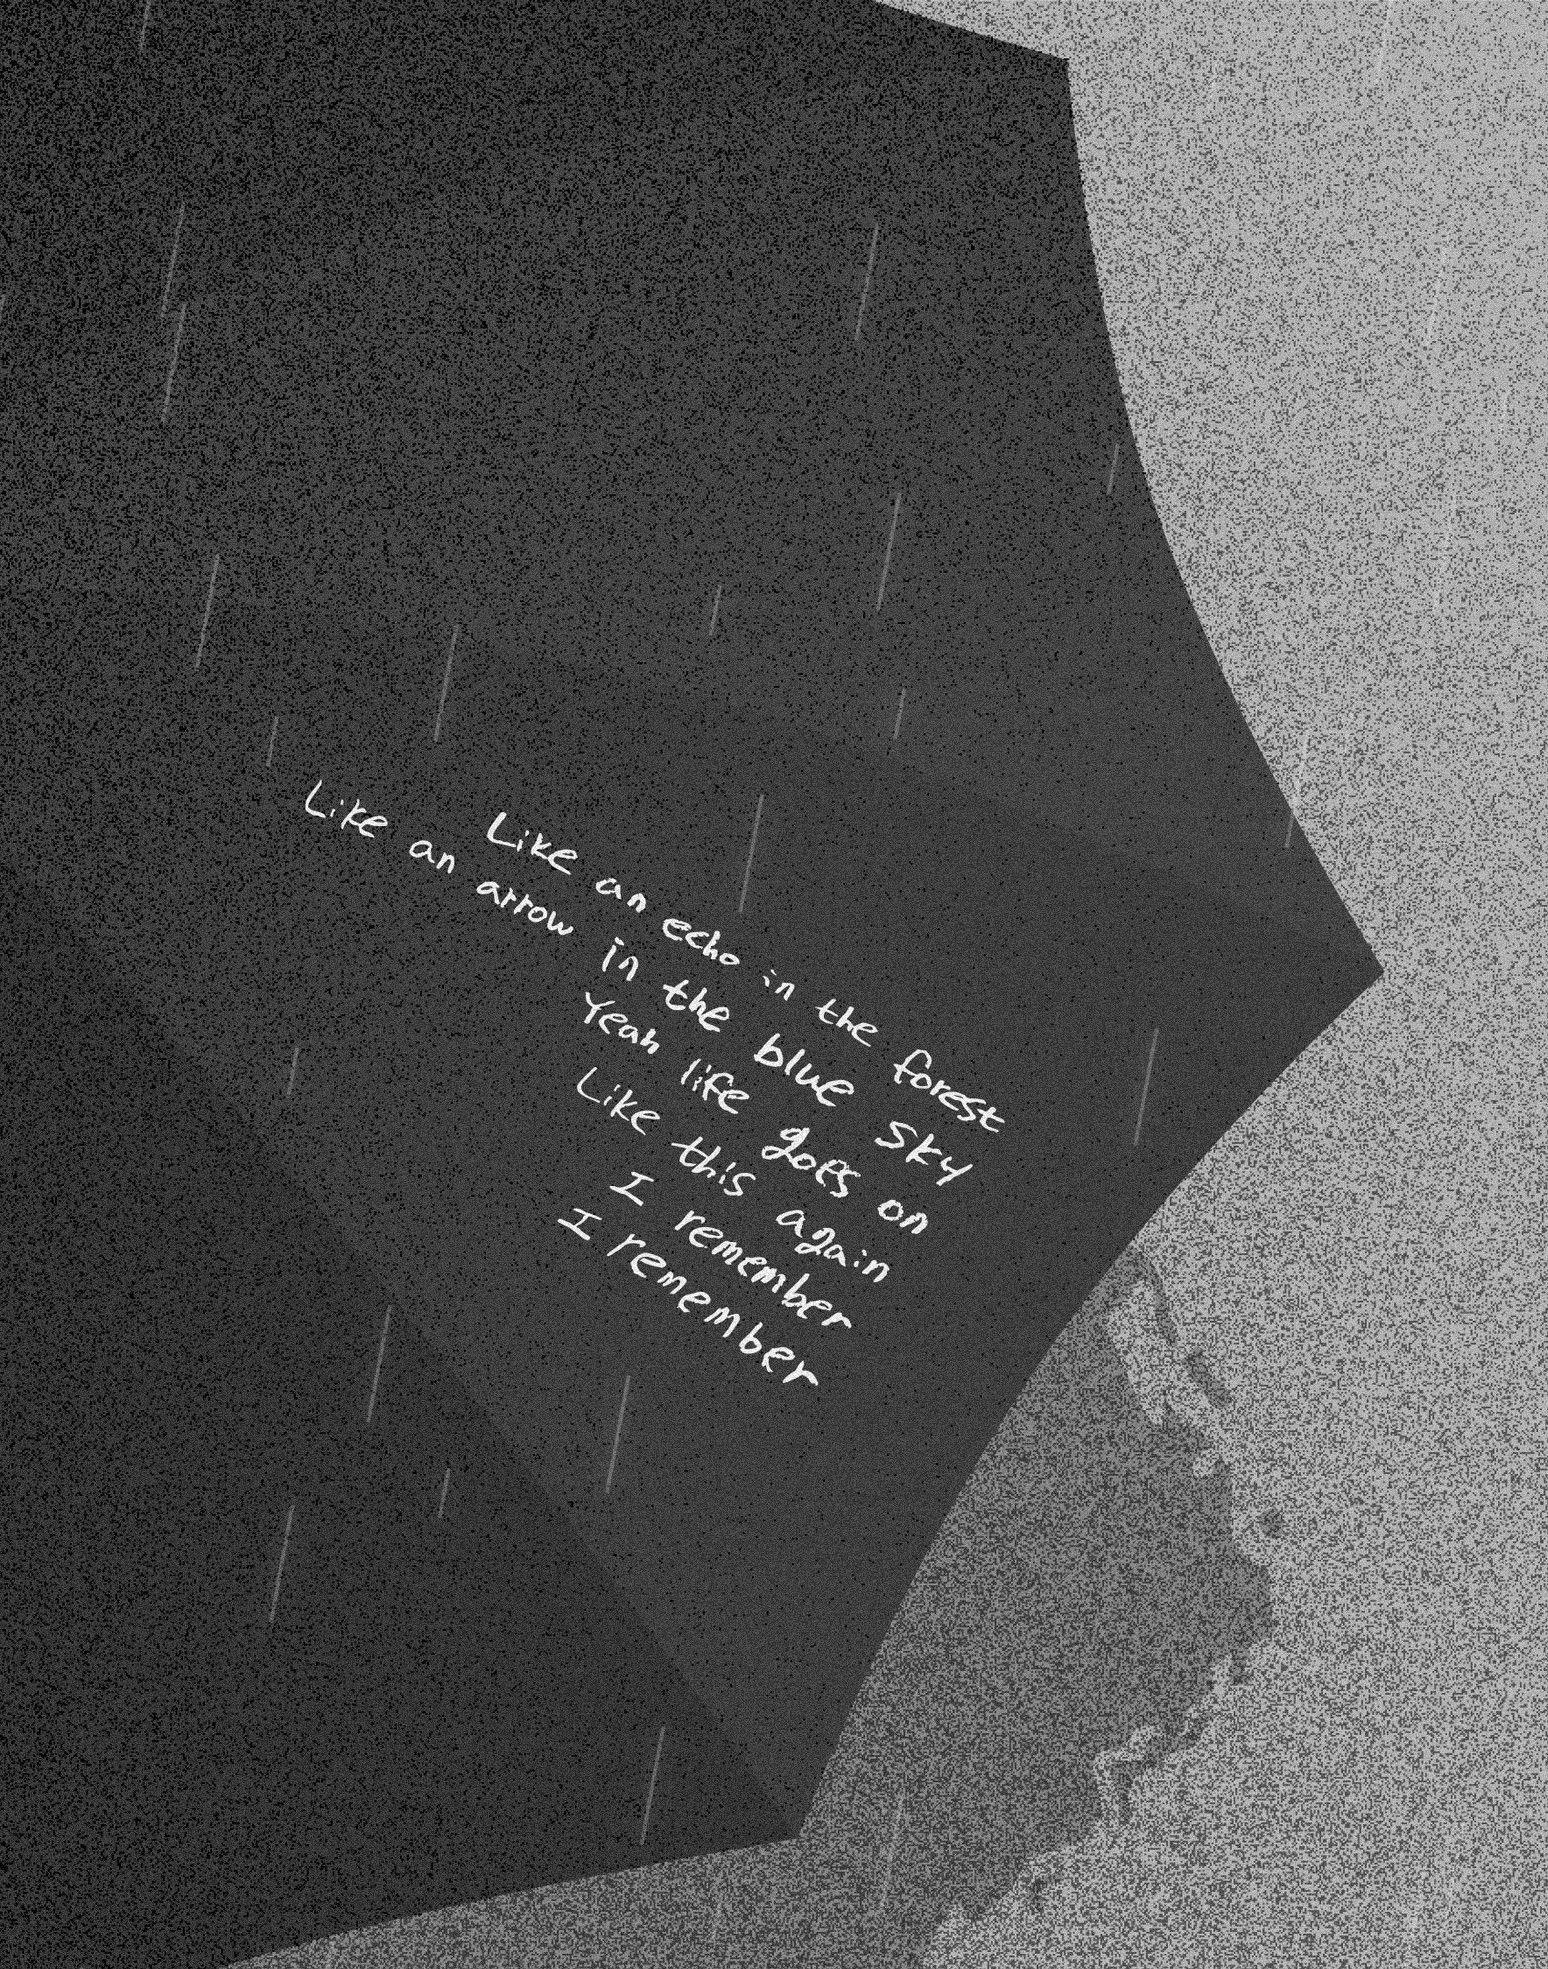 Like an echo in the forest
Like an arrow in the blue sky
Yeah life goes on
Like this again
I remember
I remember